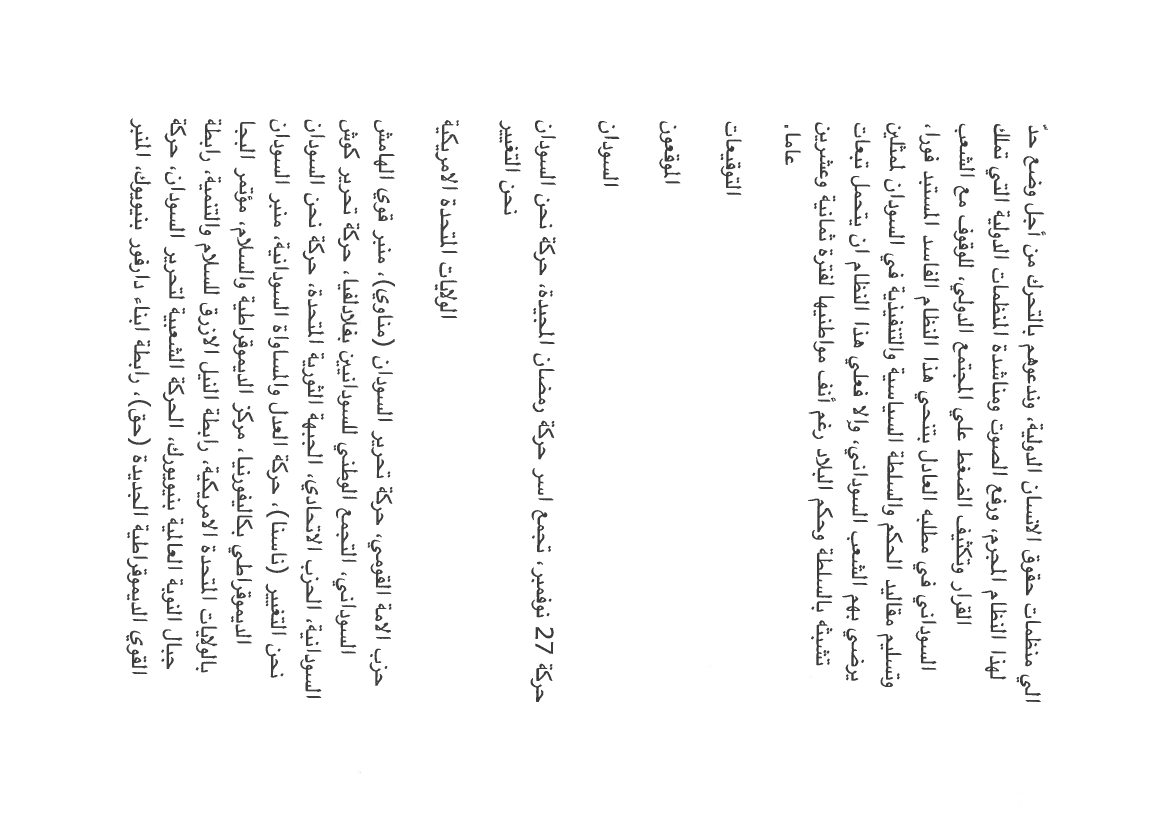 الي منظمات حقوق الانسان الدولية، وندعوهم بالتحرك من أجل وضع حدّ
لهذا النظام المجرم، ورفع الصوت ومناشدة المنظمات الدولية التي تملك
القرار وتكثيف الضغط علي المجتمع الدولي، للوقوف مع الشعب
السوداني في مطلبه العادل بتنحي هذا النظام الفاسد المستبد فورا،
وتسليم مقاليد الحكم والسلطة السياسية والتنفيذية في السودان لممثلين
يرضي بهم الشعب السوداني، والا فعلي هذا النظام ان يتحمل تبعات
تشبثه بالسلطة وحكم البلاد رغم أنف مواطنيها لفترة ثمانية وعشرين
عاما.
التوقيعات
الموقعون
السودان
حركة 27 نوفمبر، تجمع اسر حركة رمضان المجيدة، حركة نحن السودان
نحن التغيير
الولايات المتحدة الامريكية
حزب الامة القومي، حركة تحرير السودان (مناوي)، منبر قوي الهامش
السوداني، التجمع الوطني للسودانيين بفلادلفيا، حركة تحرير كوش
السودانية، الحزب الاتحادي، الجبهة الثورية المتحدة، حركة نحن السودان
نحن التغيير (ناسنا)، حركة العدل والمساواة السودانية، منبر السودان
الديموقراطي بكاليفورنيا، مركز الديموقراطية والسلام، مؤتمر البجا
بالولايات المتحدة الامريكية، رابطة النيل الازرق للسلام والتنمية، رابطة
جبال النوبة العالمية بنيويورك، الحركة الشعبية لتحرير السودان، حركة
القوي الديموقراطية الجديدة (حق)، رابطة ابناء دارفور بنيويوك، المنبر